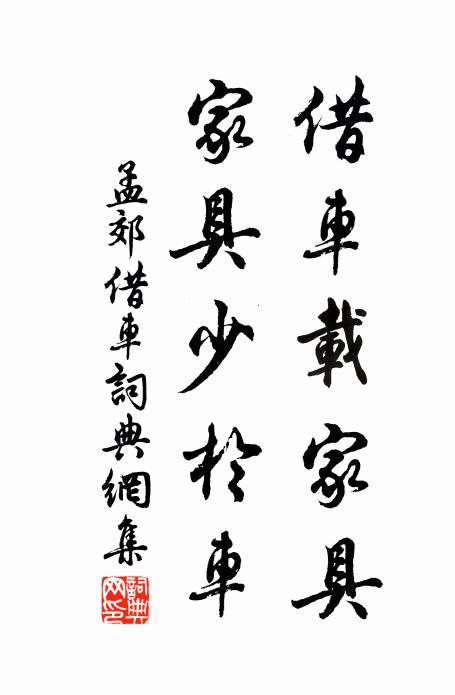 借車載家具
家具少於車
孟郊借車詞典網集
詞典
網印